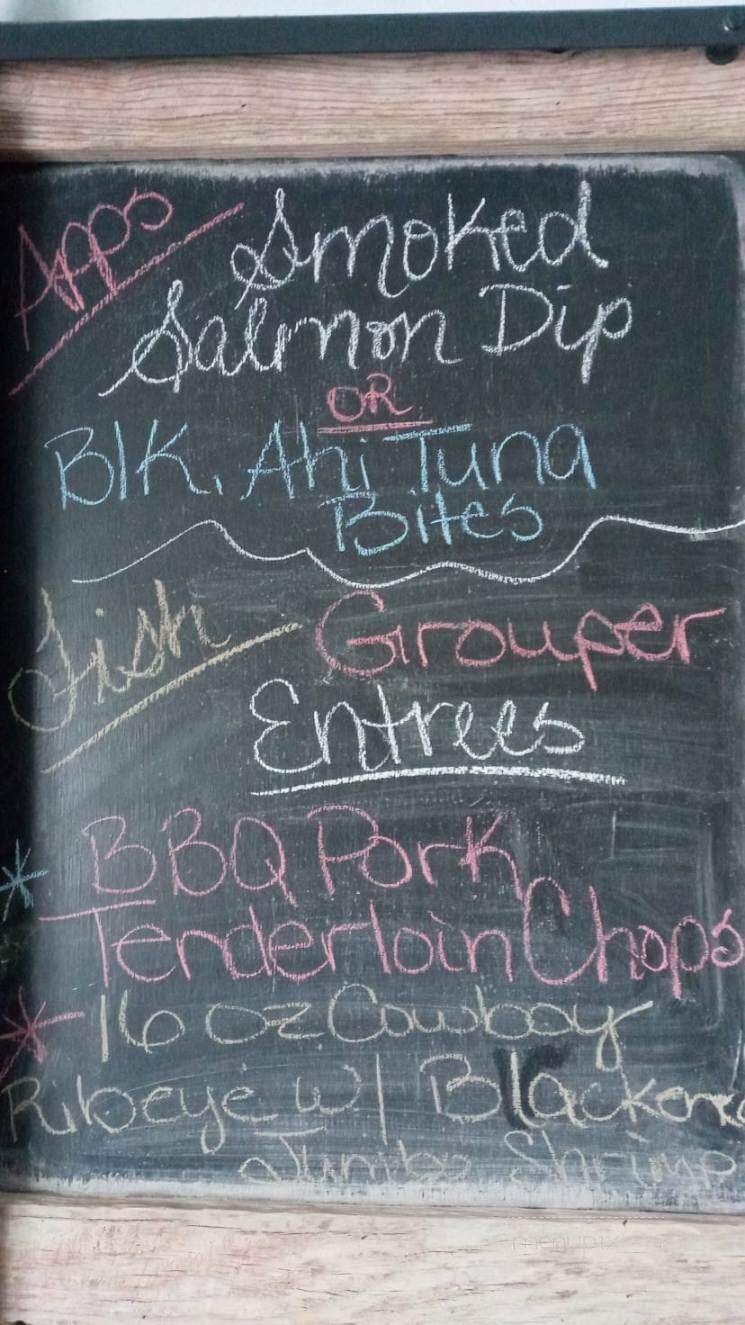 Apps Smoked
Salmon Dip
OR
Blk. Ahi Tuna
Bites
Fish Grouper
Entrees
* BBQ Pork
Tenderloin Chops
* 16 oz Cowboy
Ribeye w/ Blackened
Jumbo Shrimp